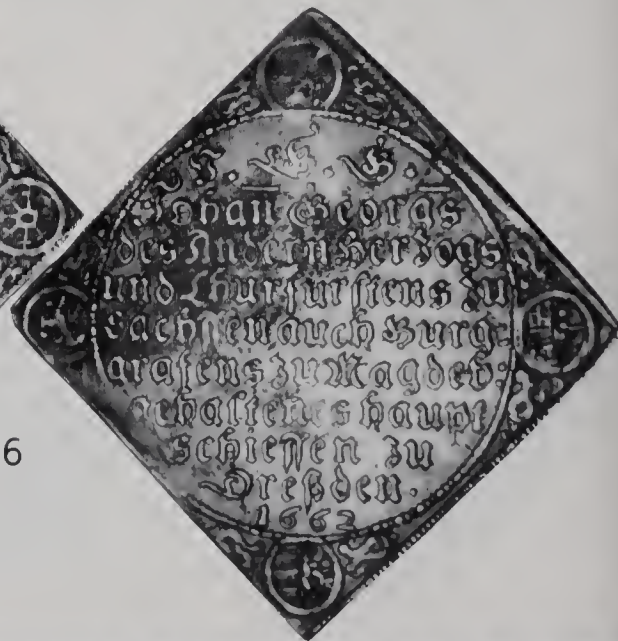 Johan Georgs
des Andern Herzogs
und Churfurstens zu
Sachssen auch Burg:
grafens zu Magdeb:
gehaltenes haupt
schiessen zu
Dreßden.
1662
6